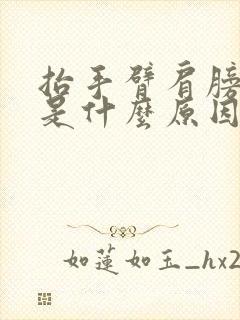 抬手臂肩膀
是什麼原因
如蓮如玉_hx2